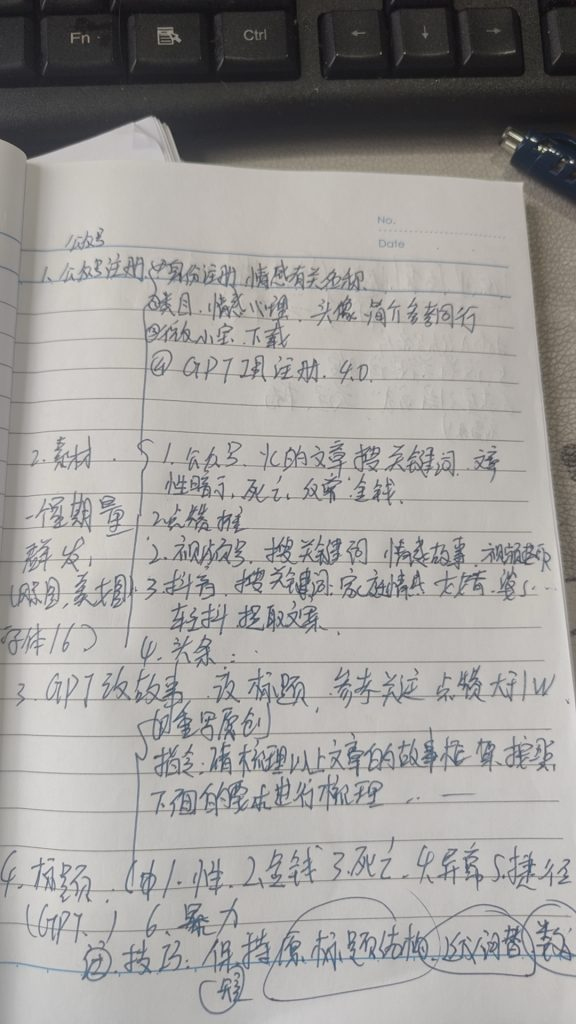 Fn
Ctrl
←
↓
→
No.
Date
公众号
1. 公众号注册 ①身份注册 情感有关名称
②类目、情感心理、头像 简介多参同行
③ 小宝 下载
④ GPT 注册. 4.0.
2. 素材 1. 公众号 的文章 搜关键词
性暗示, 死亡, 金钱.
一个星期量 2. 点赞
群发, 2. 视频号, 搜关键词 情感故事
3. 抖音, 搜关键词 家庭情感
轻抖 提取文案
字体16) 4. 头条..
3. GPT改故事 改标题, 参考关注 点赞大于1W
的重写原创
指令: 请梳理以上文章的故事框架 按照
下面的要求进行梳理 .. —
4. 标题. 1. 性. 2. 金钱 3. 死亡. 4. 异常 5. 捷径
(GPT.) 6. 暴力
技巧: 保持原标题结构 词替